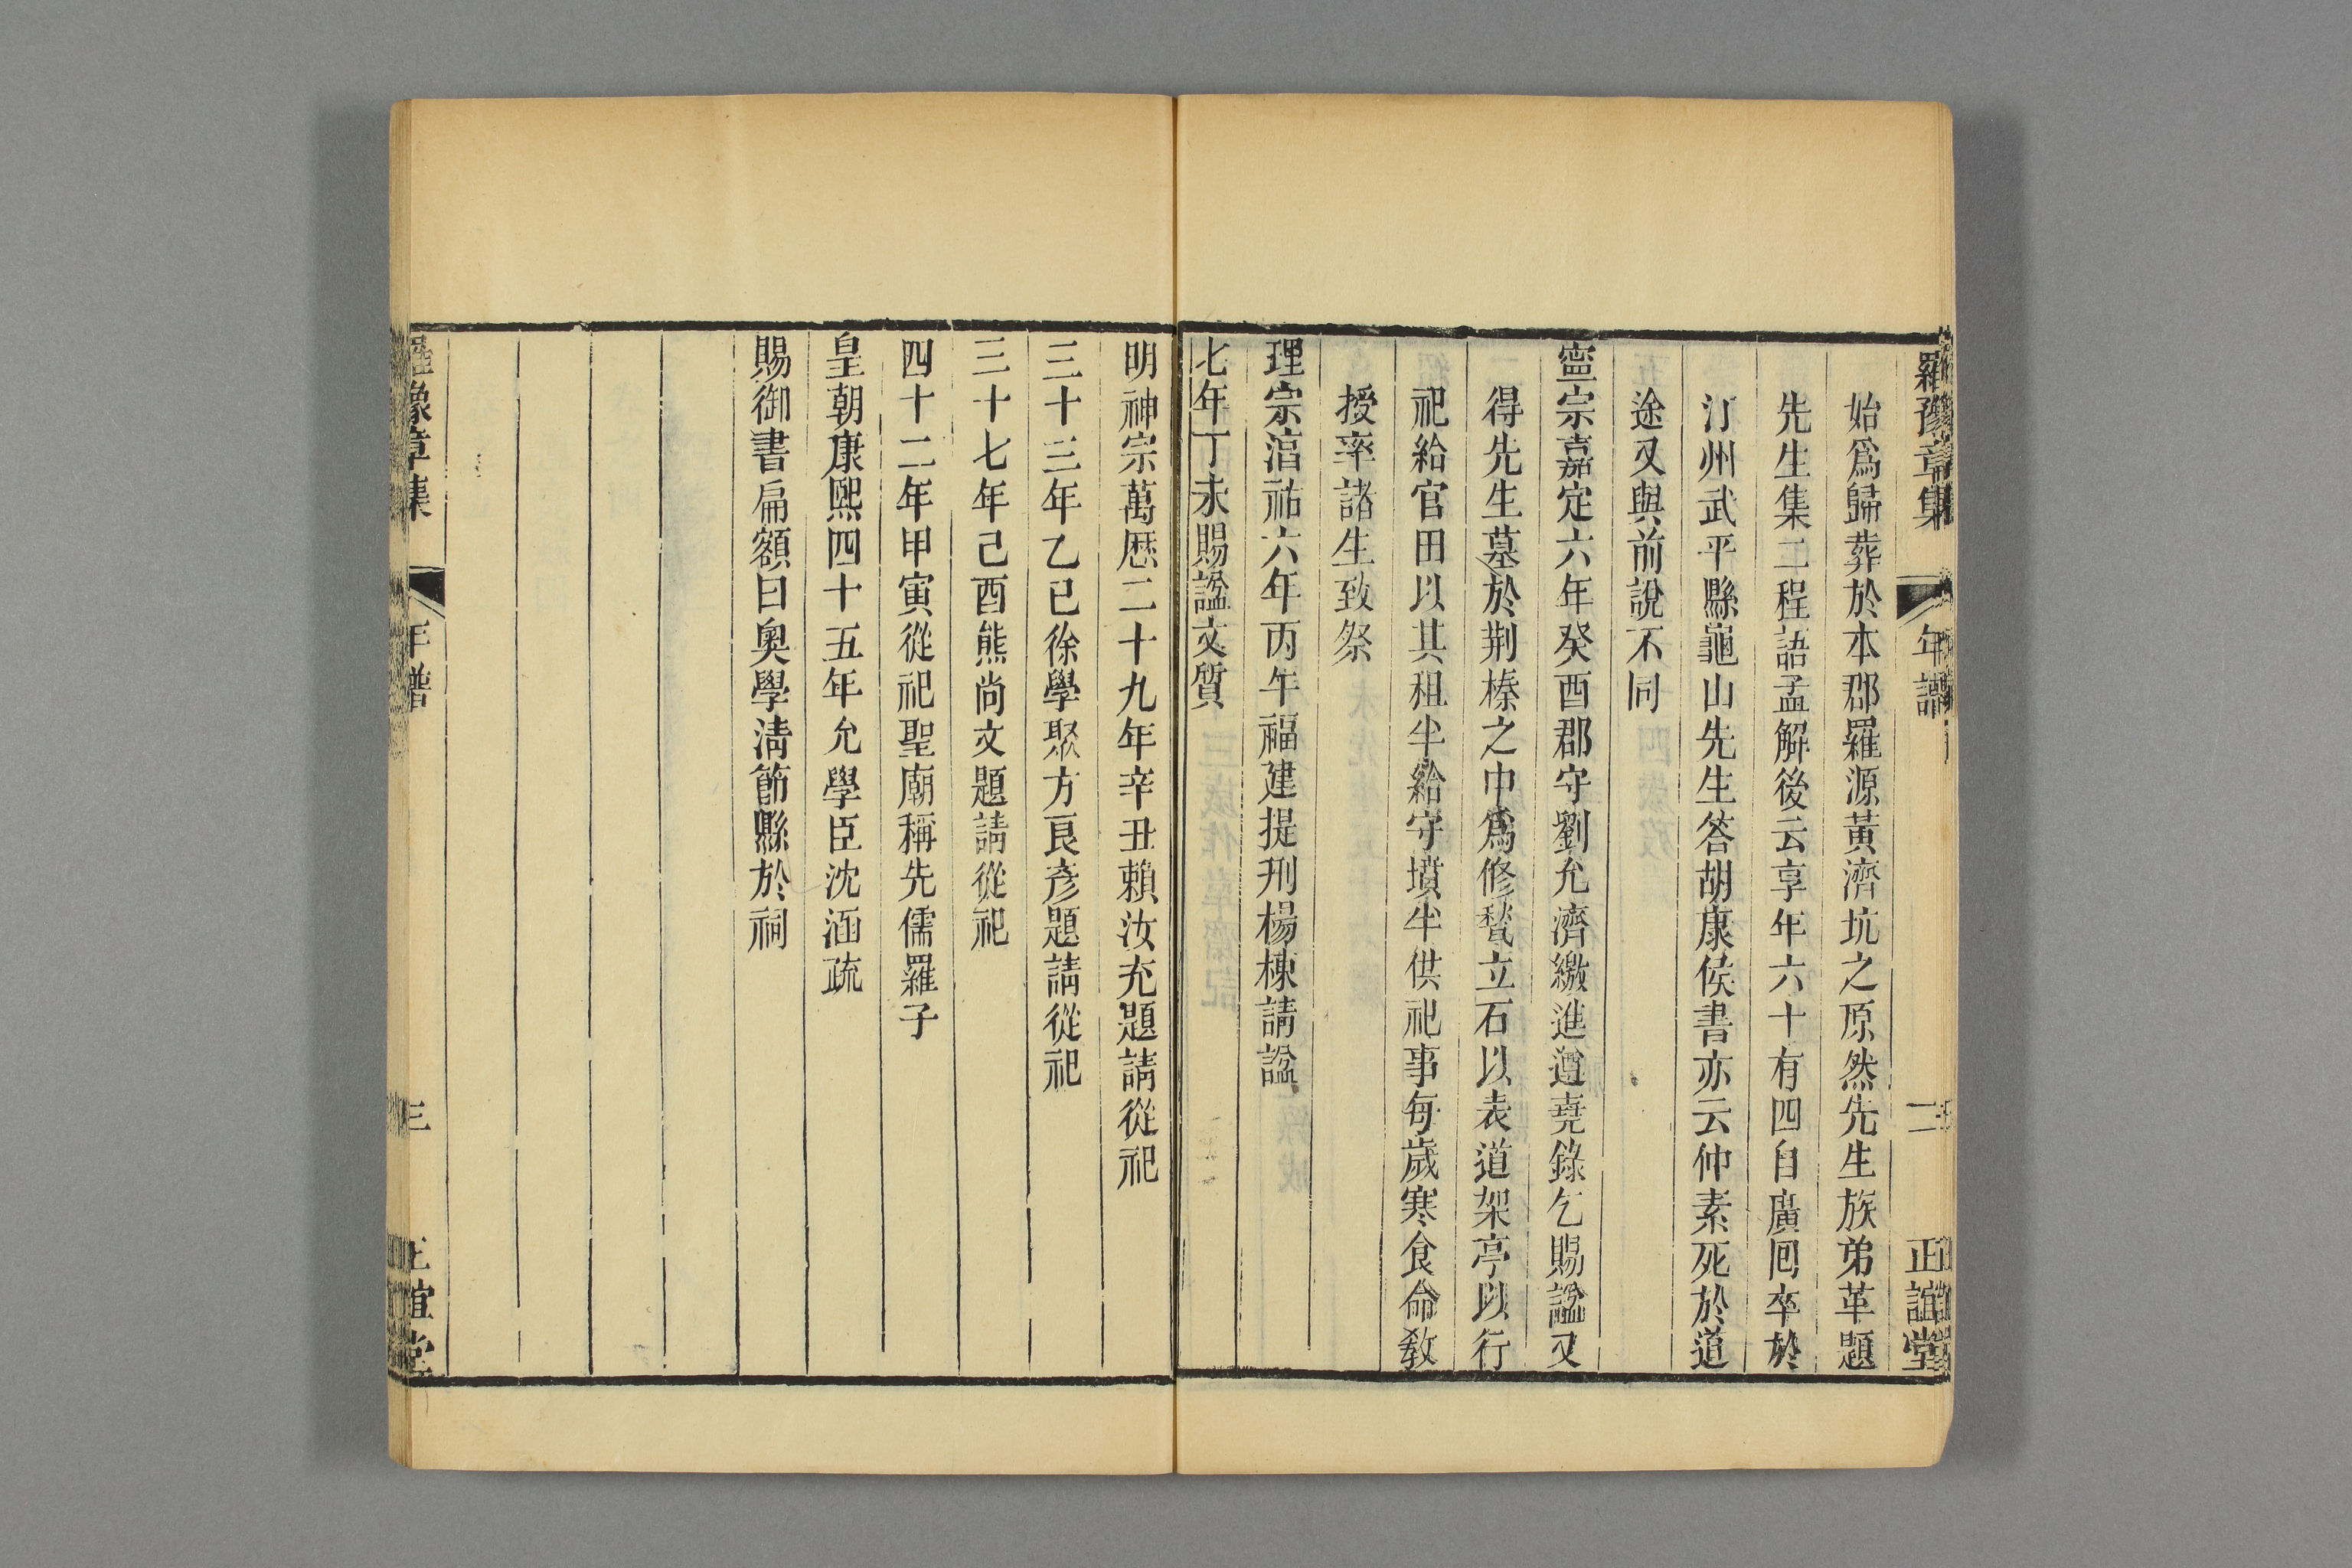 羅豫章集 年譜 二 正誼堂
始爲歸葬於本郡羅源黃濟坑之原然先生族弟革題
先生集二程語孟解後云享年六十有四自廣囘卒於
汀州武平縣龜山先生答胡康侯書亦云仲素死於道
途又與前說不同
寧宗嘉定六年癸酉郡守劉允濟繳進遵堯錄乞賜諡又
得先生墓於荆榛之中爲修甃立石以表道架亭以行
祀給官田以其租半給守墳半供祀事每歲寒食命敎
授率諸生致祭
理宗淳祐六年丙午福建提刑楊棟請諡
七年丁未賜諡文質
明神宗萬歴二十九年辛丑賴汝充題請從祀
三十三年乙巳徐學聚方良彥題請從祀
三十七年己酉熊尚文題請從祀
四十二年甲寅從祀聖廟稱先儒羅子
皇朝康熙四十五年允學臣沈涵疏
賜御書扁額曰奥學淸節縣於祠
羅豫章集 年譜 三 正誼堂